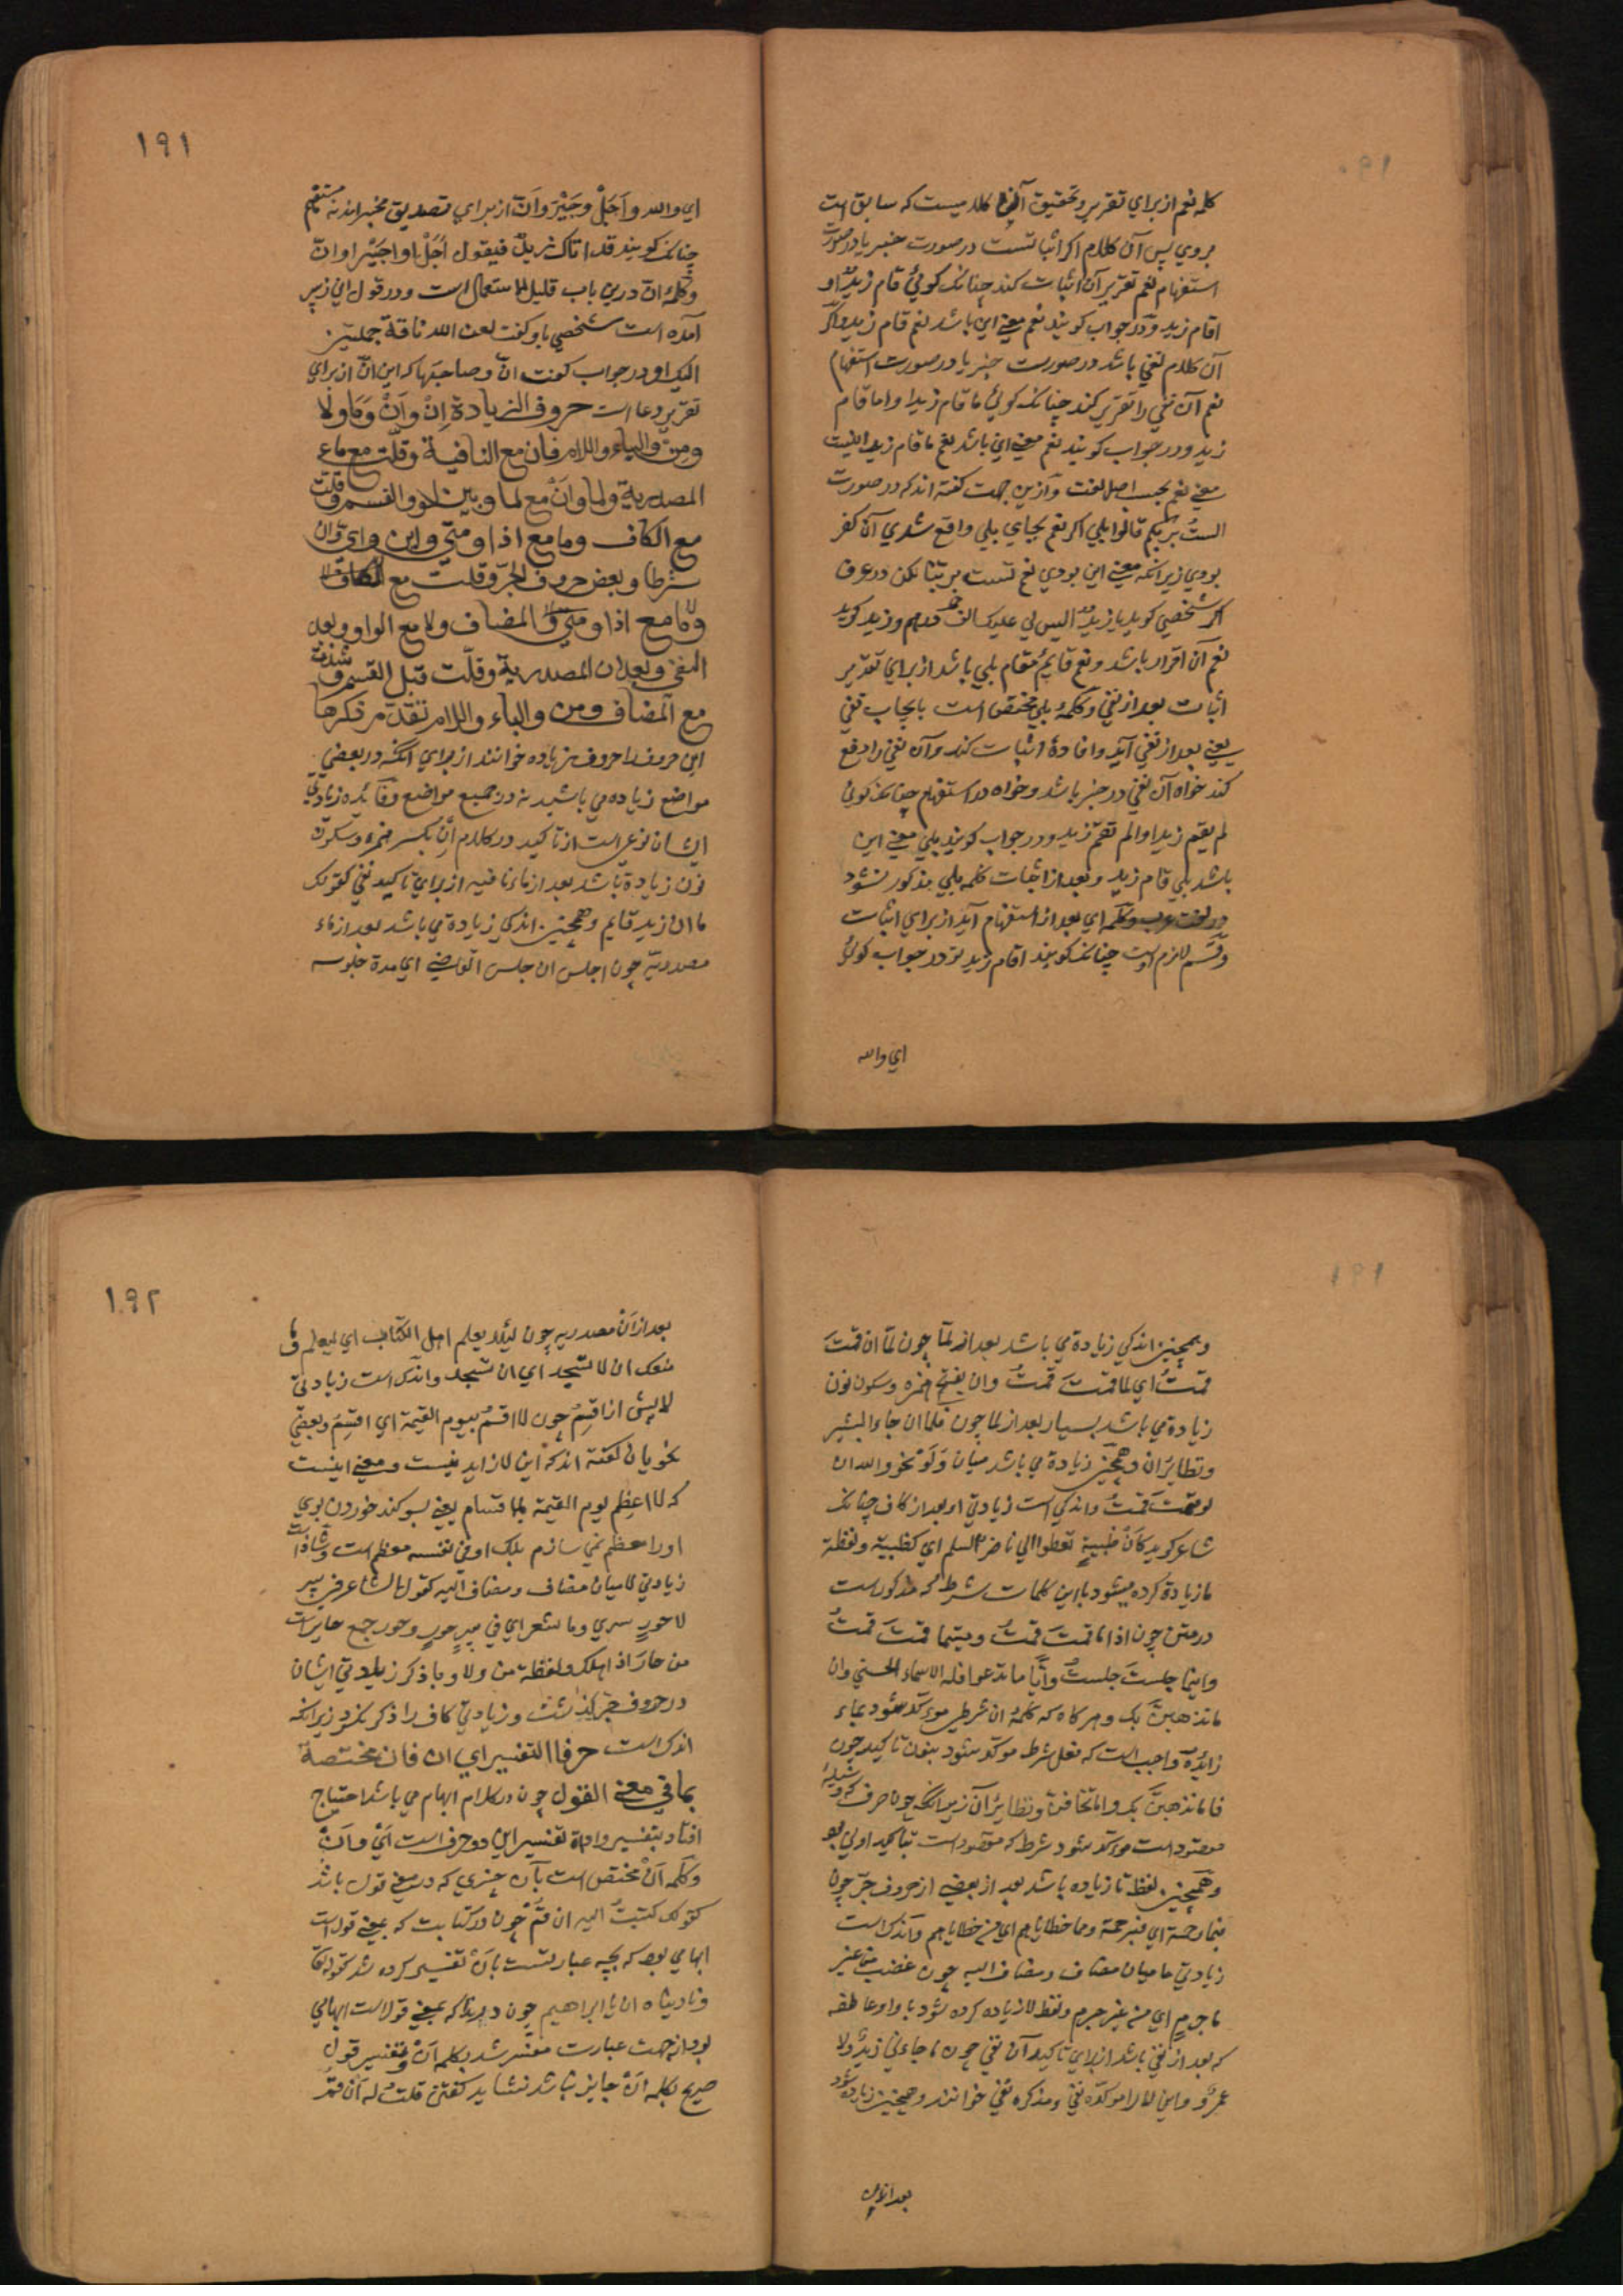 کلمه نعم از برای تقریر و تحقیق آن کلامیست که سابق است
بروی پس آن کلام اکر اثباتست در صورت خبر یا در صورت
استفهام نعم تقریر آن اثبات کند چنانک کوئی قام زیدٌ او
اقام زید و در جواب کویند نعم معنی این باشد نعم قام زید و اکر
آن کلام نفی باشد در صورت خبر یا در صورت استفهام
نعم آن نفی را تقریر کند چنانک کوئی ما قام زید او اما قام
زید و در جواب کویند نعم معنی این باشد نعم ما قام زید اینست
معنی نعم بحسب اصل لغت و ازین جهت کفته اند که در صورت
الستُ بربکم قالوا بلی اکر نعم بجای بلی واقع شدی آن کفر
بودی زیرانکه معنی این بودی نعم لست بربنا لکن در عرف
اکر شخصی کوید با زید الیس لی علیک الف درهم و زید کوید
نعم آن اقرار باشد و نعم قایم مقام بلی باشد از برای تقریر
اثبات بعد از نفی و کلمهٔ بلی مختص است بایجاب نفی
یعنی بعد از نفی آید و افادهٔ اثبات کند و آن نفی را رفع
کند خواه آن نفی در خبر باشد و خواه در استفهام چنانک کوئی
لم یقم زید او الم تقم زید و در جواب کویند بلی معنی این
باشد بلی قام زید و بعد از اثبات کلمه بلی مذکور نشود
در لغت عرب و کلمه ای بعد از استفهام آید از برای اثبات
و قسم لازم اوست چنانک کویند اقام زید تو در جواب کوئی
ای والله
۱۹۱
ای والله و اَجَلْ وجَیْرَ واَنّ از برای تصدیق مخبراند نه مستفهم
چنانک کویند قد اتاک زیدٌ فیقول اَجَلْ او جَیْر او انّ
و کلمهٔ انّ درین باب قلیل الاستعمال است و در قول ابن زبیر
آمده است شخصی باو کفت لعن الله ناقة حملتنی
الیک او در جواب کفت انّ و صاحبها که این انّ از برای
تقریر دعا است حروف الزیادة اِنْ واَنْ وَمَا ولَا
ومِنْ والباء واللام فان مع النافیة وقلّت مع ما
المصدریة ولما وانْ مع لما وبین لو والقسم وقلت
مع الکاف وما مع اذا ومتی واین وای وان
شرطا وبعض حروف الجر وقلت مع
المضاف ولا مع الواو وبعد
النفی وبعد ان المصدریة وقلّت قبل القسم وشذت
مع المضاف ومن والباء واللام تقدّم ذکرها
این حروف را حروف زیاده خوانند از برای آنکه در بعضی
مواضع زیاده می باشند نه در جمیع مواضع و فائده زیادتی
ایشان نوعی است از تاکید در کلام اِنْ بکسر همزه و سکون
نون زیادة باشد بعد از ماء نافیه از برای تاکید نفی کقولک
ما ان زید قایم و همچنین اندکی زیادة می باشد بعد از ماء
مصدریه چون اجلس ان جلس القاضی ای مدة جلوسه
۱۹۱
و همچنین اندکی زیادة می باشد بعد از لمّا چون لمّا ان قمتَ
قمتُ ای لما قمتَ قمتُ وان بفتح همزه و سکون نون
زیادة می باشد بسیار بعد از لما چون فلما ان جاء البشیر
و نظایر آن و همچنین زیادة می باشد میان وَلَوْ نحو والله ان
لو قمتَ قمتُ و اندکی است زیادتی او بعد از کاف چنانک
شاعر کوید کَاَنْ ظبیةٍ تعطوا الی ناضر السلم ای کظبیة و لفظة
ما زیادة کرده میشود با این کلمات شرط که مذکورست
در متن چون اذا ما قمتَ قمتُ ومتیما قمتَ قمتُ
واینما جلستَ جلستُ وایّاً ما تدعوا فله الاسماء الحسنی وان
ما تذهبنّ بک و هر کاه که کلمهٔ ان شرطی موکّد شود بماء
زائدة واجب است که فعل شرط موکد شود بنون تاکید چون
فاما نذهبنّ بک واما تخافنّ و نظایر آن زیرانکه چون حرف که وسیلهٔ
مقصود است موکد شود شرط که مقصود است بتاکید اولی بود
و همچنین لفظ ما زیاده باشد بعد از بعضی از حروف جر چون
فبما رحمة ای فبرحمة ومما خطایاهم ای من خطایاهم و اندک است
زیادتی ما میان مضاف و مضاف الیه چون غضب من غیر
ما جرمٍ ای من غیر جرم و لفظ لا زیاده کرده شود با واو عاطفه
که بعد از نفی باشد از برای تاکید آن نفی چون ما جاءنی زیدٌ ولا
عمرٌو و این لا را موکده نفی و مذکره نفی خوانند و همچنین زیاده شود
بعد از ان
۱۹۲
بعد از اَن مصدریه چون لیلا یعلم اهل الکتاب ای لیعلم و ما
منعک ان لا تسجد ای ان تسجد و اندک است زیادتی
لا پیش از اقسِمُ چون لا اقسم بیوم القیمة ای اقسِمُ و بعضی
نحویان کفته اند که این لا زاید نیست و معنی اینست
که لا اعظم یوم القیمة بالاقسام یعنی بسوکند خوردن بوی
او را معظم نمی سازم بلک او فی نفسه معظم است و شاذّ است
زیادتی لا میان مضاف و مضاف الیه کقول الشاعر فی بیر
لا حورٍ سری وما شعر ای فی بیر حورٍ و حور جمع حایرست
من حارَ اذا هلک و لفظه من و لام و با ذکر زیادتی ایشان
در حروف جرّ کذشت و زیادتی کاف را ذکر نکرد زیرانکه
اندک است حرفا التفسیر ای ان فان مختصة
بما فی معنی القول چون در کلام ابهام می باشد احتیاج
افتاد بتفسیر و اداة تفسیر این دو حرف است اَیْ و اَنْ
و کلمه اَنْ مختص است بآن چیزی که در معنی قول باشد
کقولک کتبتُ الیه ان قُمْ چون در کتابت که بمعنی قول است
ابهامی بود که بچه عبارتست بَانْ تفسیر کرده شد کقوله تعا
ونادیناه ان یا ابراهیم چون در ندا که بمعنی قول است ابهامی
بود از جهت عبارت مفسر شد بکلمه اَنْ و تفسیر قول
صریح بکلمه اَنْ جایز نباشد نشاید کفتن قلتُ له اَن قُمْ